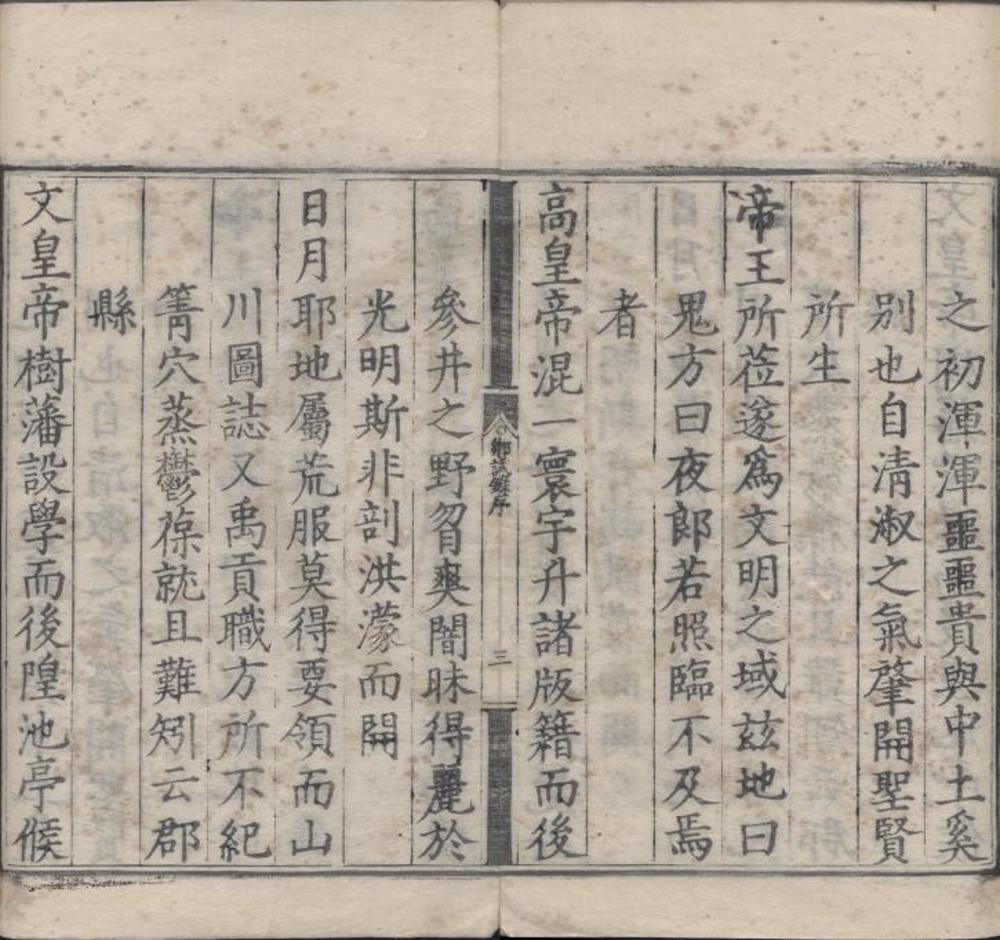 之初渾渾噩噩貴與中土奚
別也自淸淑之氣肇開聖賢
所生
帝王所莅遂爲文明之域茲地曰
鬼方曰夜郎若照臨不及焉
者
高皇帝混一寰宇升諸版籍而後
鄉試錄序
三
參井之野曶爽闇昧得麗於
光明斯非剖洪濛而開
日月耶地屬荒服莫得要領而山
川圖誌又禹貢職方所不紀
箐穴蒸鬱葆就且難矧云郡
縣
文皇帝樹藩設學而後隍池亭候